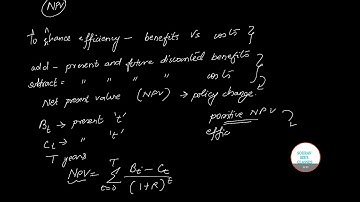 NPV
To enhance efficiency - benefits vs costs
add - present and future discounted benefits
subtract = " " " " costs
Net present value (NPV) → policy change.
Bt → present 't'
Ct → " 't'
positive NPV
effic
T years
NPV = T Σ t=0 Bt - Ct / (1+R)^t